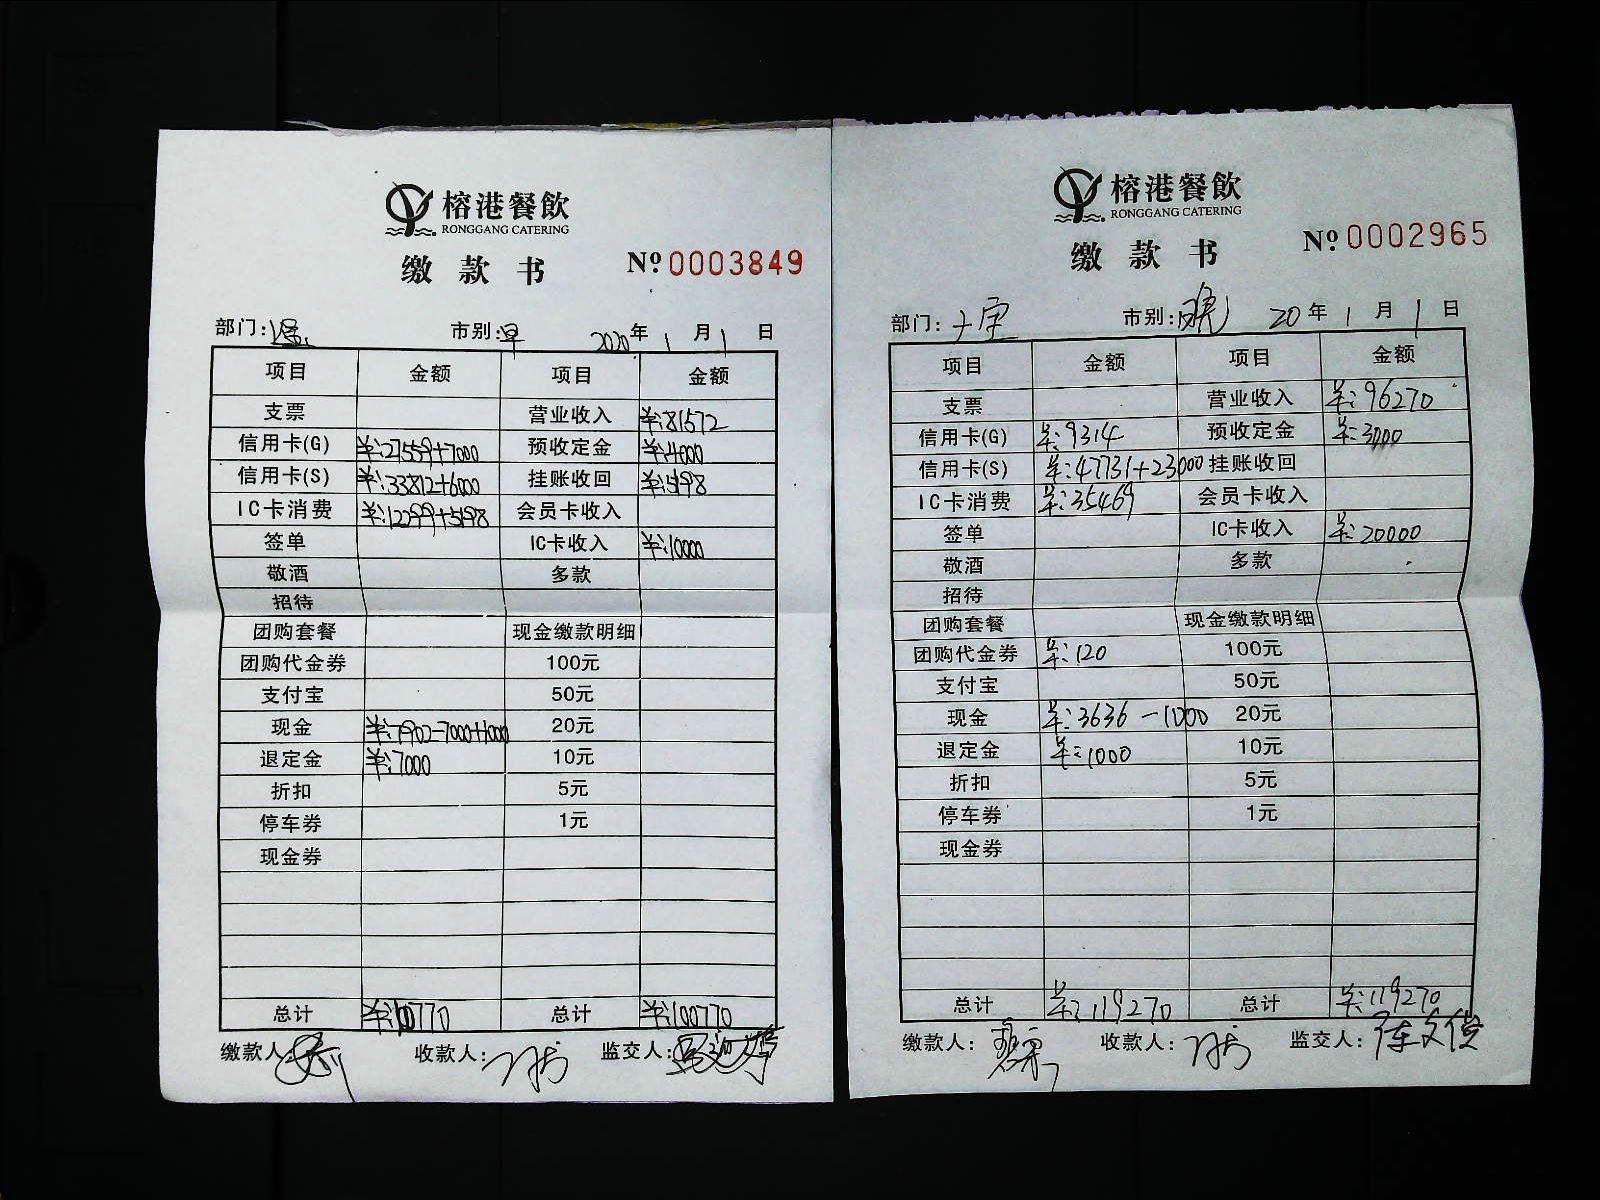 榕港餐飲
RONGGANG CATERING
缴款书
№ 0003849
部门: 市别:早 2020年1月1日
项目 金额 项目 金额
支票 营业收入 ¥:81572
信用卡(G) ¥:27559+7000 预收定金 ¥:4000
信用卡(S) ¥:33812+6000 挂账收回 ¥:5198
IC卡消费 ¥:12299+5198 会员卡收入
签单 IC卡收入 ¥:10000
敬酒 多款
招待
团购套餐 现金缴款明细
团购代金券 100元
支付宝 50元
现金 ¥:7902-7000+1000 20元
退定金 ¥:7000 10元
折扣 5元
停车券 1元
现金券
总计 ¥:100770 总计 ¥:100770
缴款人: 收款人: 监交人:
榕港餐飲
RONGGANG CATERING
缴款书
№ 0002965
部门: 市别:晚 20年1月1日
项目 金额 项目 金额
支票 营业收入 ¥:96270
信用卡(G) ¥:9314 预收定金 ¥:3000
信用卡(S) ¥:47731+23000 挂账收回
IC卡消费 ¥:35469 会员卡收入
签单 IC卡收入 ¥:20000
敬酒 多款
招待
团购套餐 现金缴款明细
团购代金券 ¥:120 100元
支付宝 50元
现金 ¥:3636-1000 20元
退定金 ¥:1000 10元
折扣 5元
停车券 1元
现金券
总计 ¥:119270 总计 ¥:119270
缴款人: 收款人: 监交人:陈文俊